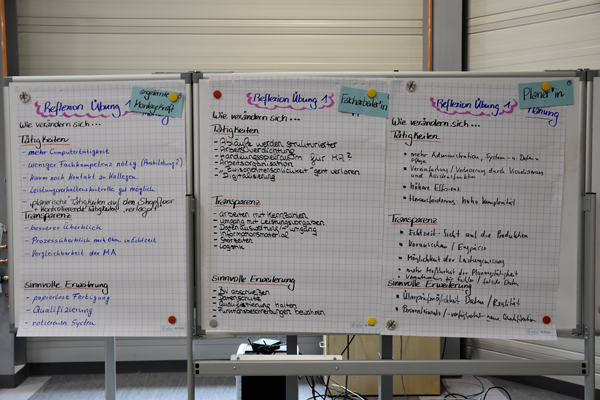 Reflexion Übung 1
angelernte
Montagekraft
Wie verändern sich...
Tätigkeiten
- mehr Computertätigkeit
- weniger Fachkompetenz nötig (Ausbildung?)
- kaum noch Kontakt zu Kollegen
- Leistungsverhaltenskontrolle gut möglich
- planerische Tätigkeiten auf dem Shopfloor
+ Kontrollierende Tätigkeiten verlagert
Transparenz
- besserer Überblick
- Prozessüberblick
- Vergleichbarkeit der MA
Sinnvolle Erweiterung
- papierlose Fertigung
- Qualifizierung
- rotierendes System
Reflexion Übung 1
Facharbeiter*in
Wie verändern sich...
Tätigkeiten
- Abläufe werden strukturierter
- Arbeitsverdichtung
- Handlungsspielraum für MA?
- Arbeitsorganisation
- "Zwischenmenschlichkeit" geht verloren
- Digitalisierung
Transparenz
- arbeiten mit Kennzahlen
- Umgang mit Leistungsvorgaben
- Datenauswertung/-umgang
- Informationsmaterial
- Störzeiten
- Logistik
Sinnvolle Erweiterung
- BV abschließen
- Datenschutz
- Qualifizierung halten
- Funktionsbeschreibungen
Reflexion Übung 1
Planer*in
Planung
Wie verändern sich...
Tätigkeiten
• mehr Administration, System- u. Daten-
pflege
• Vereinfachung / Verbesserung durch Visualisierung
und Assistenzfunktion
• höhere Effizienz
• Herausforderung, hohe Komplexität
Transparenz
• Echtzeit-Sicht auf die Produktion
• Vorausschau / Engpässe
• Möglichkeit der Leistungsmessung
• mehr Meßbarkeit der Planungstätigkeit
Sinnvolle Erweiterung
• Daten / Realität
• neue Qualifikation